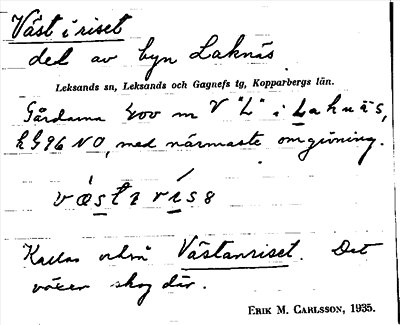 Väst i riset
del av byn Laknäs
Leksands sn, Leksands och Gagnefs tg, Kopparbergs län.
Gårdarna 400 m V "L" i Laknäs,
k G96 NO, med närmaste omgivning.
Kallas också Västanriset. Det
växer skog där.
ERIK M. CARLSSON, 1935.